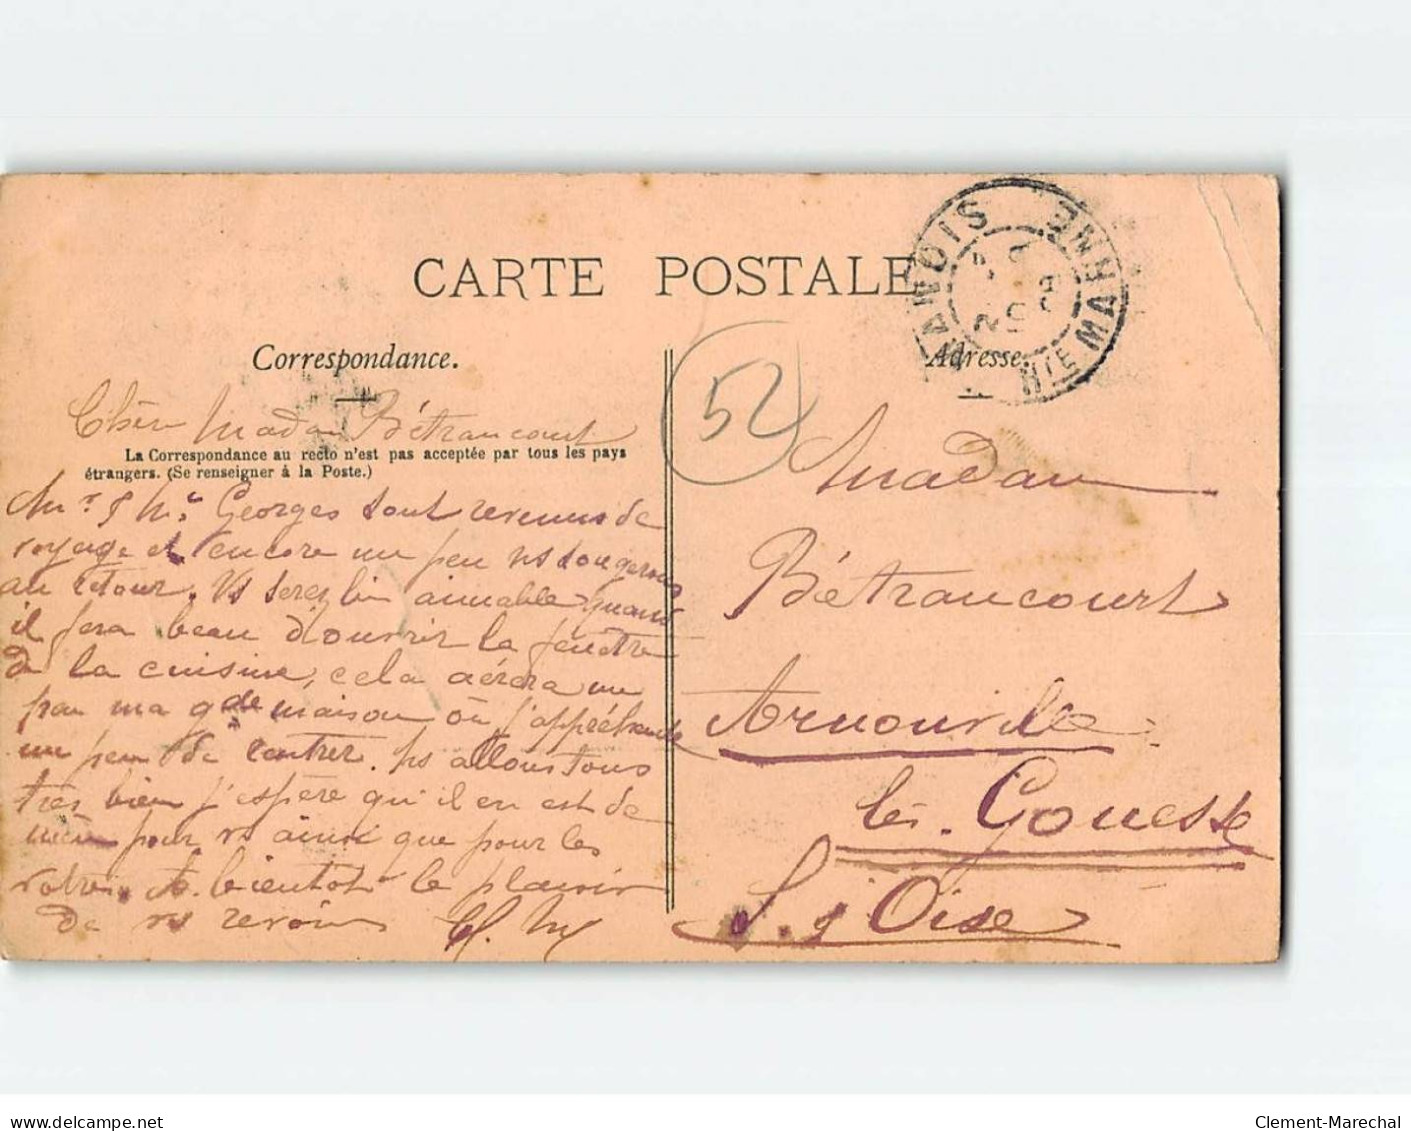 CARTE POSTALE
Correspondance.
Adresse.
HTE MARNE
52
Chère Madame Bétrancourt
La Correspondance au recto n'est pas acceptée par tous les pays
étrangers. (Se renseigner à la Poste.)
Mr & Me Georges sont revenus de
voyage et encore un peu ns songerons
au retour. Vs serez bien aimable quand
il fera beau d'ouvrir la fenêtre
de la cuisine, cela aérera un
peu ma gde maison où j'appréhende
un peu de rentrer. Ns allons tous
très bien j'espère qu'il en est de
même pour vs ainsi que pour les
votres. A bientot le plaisir
de vs revoir
Madame
Bétrancourt
Arnouville
lès-Gonesse
S. & Oise
www.delcampe.net
Clement-Marechal